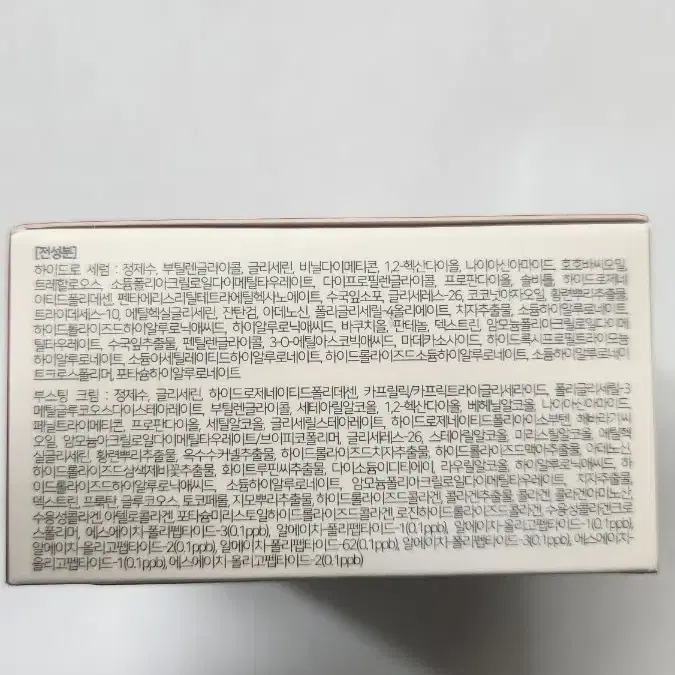 [전성분]
하이드로 세럼 : 정제수, 부틸렌글라이콜, 글리세린, 비닐다이메티콘, 1,2-헥산다이올, 나이아신아마이드, 호호바씨오일,
트레할로오스, 소듐폴리아크릴로일다이메틸타우레이트, 다이프로필렌글라이콜, 프로판다이올, 솔비톨, 하이드로제네
이티드폴리데센, 펜타에리스리틸테트라에틸헥사노에이트, 수국잎스포, 글리세레스-26, 코코넛야자오일, 황련뿌리추출물,
트라이데세스-10, 에틸헥실글리세린, 잔탄검, 아데노신, 폴리글세릴-4올리에이트, 치자추출물, 소듐하이알루로네이트,
하이드롤라이즈드하이알루로닉애씨드, 하이알루로닉애씨드, 바쿠치올, 판테놀, 덱스트린, 암모늄폴리아크릴로일다이메
틸타우레이트, 수국잎추출물, 펜틸렌글라이콜, 3-O-에틸아스코빅애씨드, 마데카소사이드, 하이드록시프로필트라이모늄
하이알루로네이트, 소듐아세틸레이티드하이알루로네이트, 하이드롤라이즈드소듐하이알루로네이트, 소듐하이알루로네이
트크로스폴리머, 포타슘하이알루로네이트
부스팅 크림 : 정제수, 글리세린, 하이드로제네이티드폴리데센, 카프릴릭/카프릭트라이글리세라이드, 폴리글세릴-3
메틸글루코오스다이스테아레이트, 부틸렌글라이콜, 세테아릴알코올, 1,2-헥산다이올, 베헤닐알코올, 나이아신아마이드,
페닐트라이메티콘, 프로판다이올, 세틸알코올, 글리세릴스테아레이트, 하이드로제네이티드폴리아이소부텐, 해바라기씨
오일, 암모늄아크릴로일다이메틸타우레이트/브이피코폴리머, 글리세레스-26, 스테아릴알코올, 미리스틸알코올, 에틸헥
실글리세린, 황련뿌리추출물, 옥수수커넬추출물, 하이드롤라이즈드치자추출물, 하이드롤라이즈드맥아추출물, 아데노신,
하이드롤라이즈드삼색제비꽃추출물, 화이트루핀씨추출물, 다이소듐이디티에이, 라우릴알코올, 하이알루로닉애씨드, 하
이드롤라이즈드하이알루로닉애씨드, 소듐하이알루로네이트, 암모늄폴리아크릴로일다이메틸타우레이트, 치자추출물,
덱스트린, 프룩탄, 글루코오스, 토코페롤, 지모뿌리추출물, 하이드롤라이즈드콜라겐, 콜라겐추출물, 콜라겐, 콜라겐아미노산,
수용성콜라겐, 아텔로콜라겐, 포타슘미리스토일하이드롤라이즈드콜라겐, 로진하이드롤라이즈드콜라겐, 수용성콜라겐크로
스폴리머, 에스에이치-폴리펩타이드-3(0.1ppb), 알에이치-폴리펩타이드-1(0.1ppb), 알에이치-폴리펩타이드-9(0.1ppb),
알에이치-올리고펩타이드-2(0.1ppb), 알에이치-폴리펩타이드-62(0.1ppb), 알에이치-폴리펩타이드-3(0.1ppb), 에스에이치-
올리고펩타이드-1(0.1ppb), 에스에이치-올리고펩타이드-2(0.1ppb)